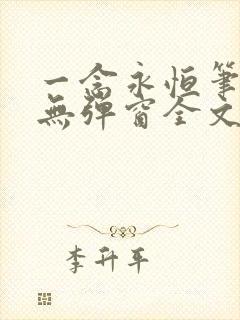 一念永恒筆
無彈窗全文
李升平